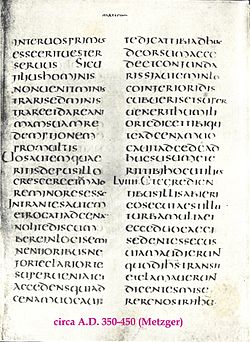 MATTHEUS
INTER VOS PRIMUS
ESSE ERIT VESTER
SERVUS SICUT
FILIUS HOMINIS
NON VENIT MINIS
TRARI SED MINIS
TRARE ET DARE ANI
MAM SUAM RE
DEMPTIONEM
PRO MULTIS
VOS AUTEM QUAE
RITIS DE PUSILLO
CRESCERE ET DE MAIO
RE MINORES ESSE
INTRANTES AUTEM
ET ROGATI AD CENA
NOLITE DISCUM
BERE IN LOCIS EMI
NENTIORIBUS NE
FORTE CLARIOR TE
SUPERVENIAT ET
ACCEDENS QUI AD
CENAM VOCAVIT
TE DICAT TIBI ADHUC
DEORSUM ACCE
DE ET CONFUNDA
RIS SI AUTEM IN LO
CO INFERIORI DIS
CUBUERIS ET SUPER
VENERIT HUMILI
OR TE DICET TIBI QUI
TE AD CENAM VO
CAVIT ACCEDE AD
HUC SUSUM ET E
RIT TIBI HOC UTILIUS
ET EGREDIEN
TIBUS ILLIS AB HIERI
CO SECUTA EST ILLU
TURBA MULTA ET
ECCE DUO CAECI
SEDENTES SECUS
VIAM AUDIERUN
QUOD IHS TRANSI
RET
DICENTES MISE
RERE NOSTRI
circa A.D. 350-450 (Metzger)